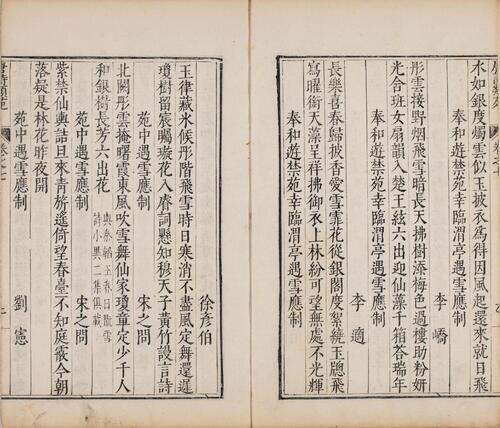 水如銀度燭雲似玉披衣為得因風起還來就日飛
奉和遊禁苑幸臨渭亭遇雪應制
李嶠
彤雲接野烟飛雪暗長天拂樹添梅色過樓助粉妍
光合班女扇韻入楚王絃六出迎仙藻千箱荅瑞年
奉和遊禁苑幸臨渭亭遇雪應制
李適
長樂喜春歸披香愛雪霏花從銀閣度絮繞玉牕飛
寫曜銜天藻呈祥拂御衣上林紛可望無處不光輝
奉和遊禁苑幸臨渭亭遇雪應制
徐彦伯
玉律藏氷候彤階飛雪時日寒消不盡風定舞還遲
瓊樹留宸矚璇花入睿詞懸知穆天子黄竹謾言詩
苑中遇雪應制
宋之問
北闕彤雲掩曙霞東風吹雪舞仙家瓊章定少千人
和銀樹長芳六出花
苑中遇雪應制
宋之問
紫禁仙輿詰旦來青旂遙倚望春臺不知庭霰今朝
落疑是林花昨夜開
苑中遇雪應制
劉憲